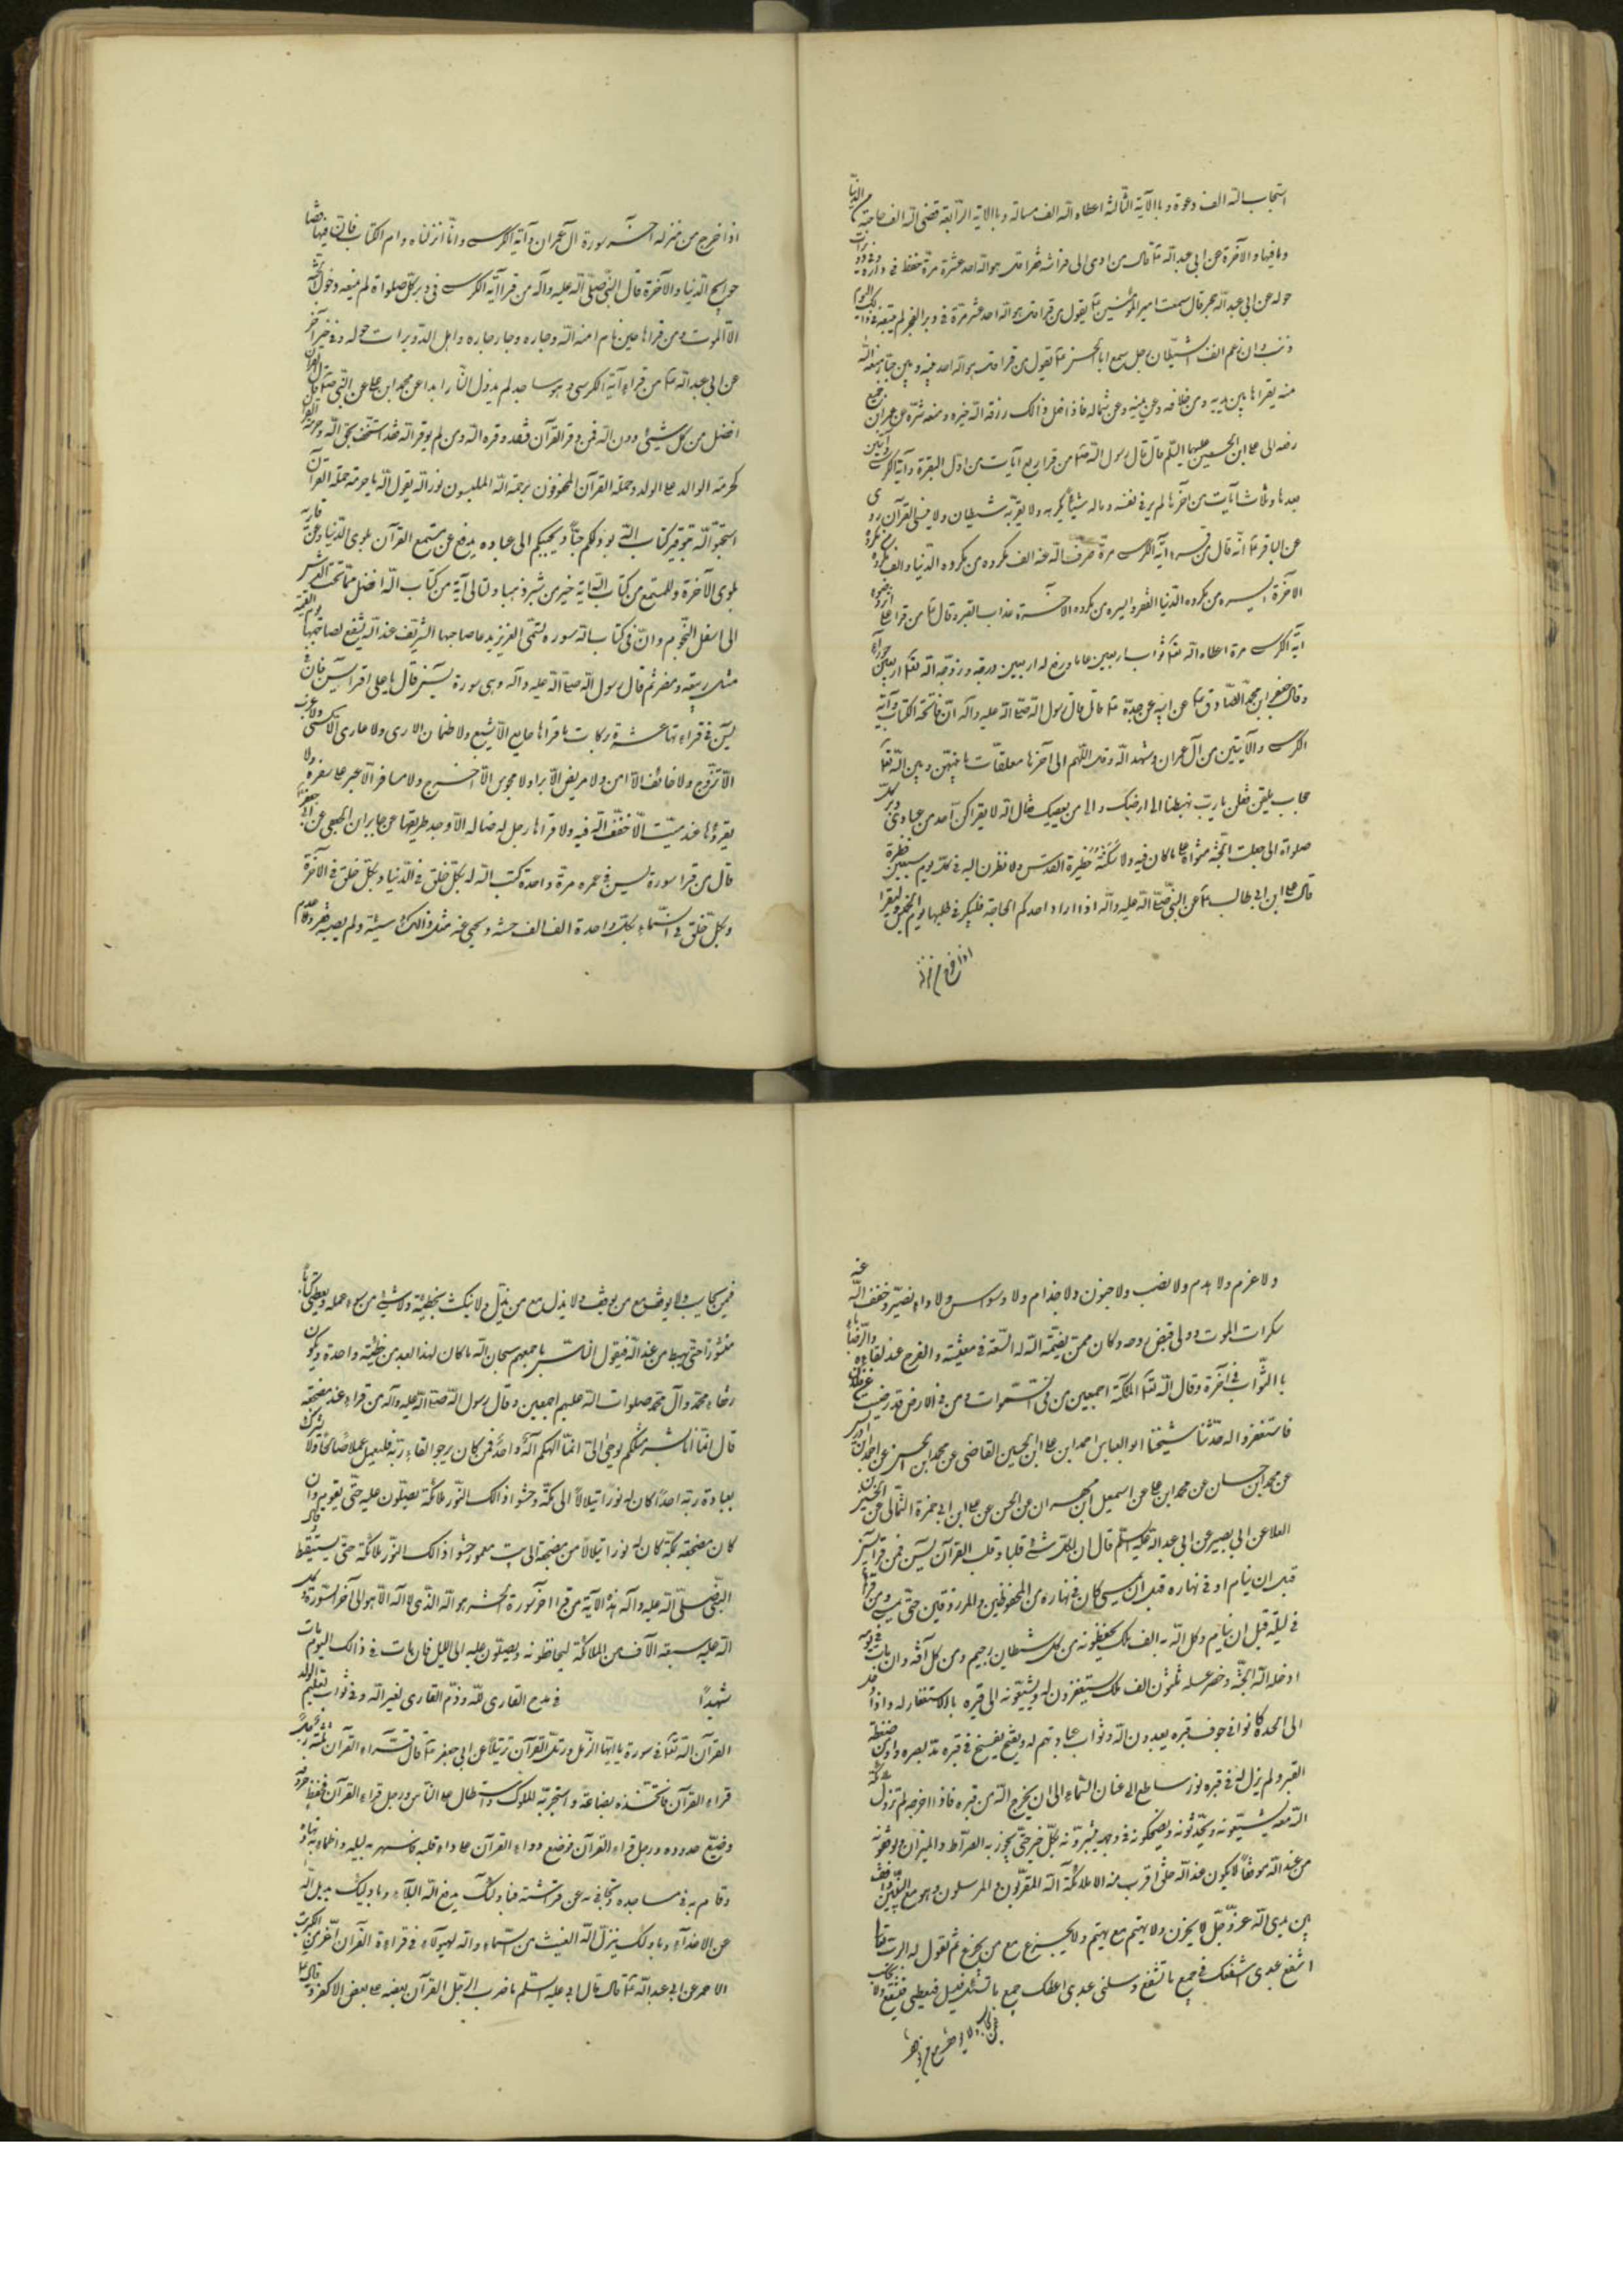 استجاب الله الف دعوة وبالآية الثالثة اعطاه الله الف مسالة وبالاية الرابعة قضى الله الف حاجة من الدنيا
وما فيها والآخرة عن ابى عبد الله قال من اوى الى فراشه فقرا قل هو الله احد عشرة مرة حفظ فى داره
حوله عن ابى عبد الله قال سمعت امير المؤمنين يقول من قرا قل هو الله احد عشر مرة فى دبر الفجر لم يتبعه فى ذلك اليوم
ذنب وان رغم انف الشيطان سمع ابا الحسن يقول من قرا قل هو الله احد بينه وبين جبار منعه الله
منه يقراها بين يديه ومن خلفه وعن يمينه وعن شماله فاذا فعل ذالك رزقه الله خيره ومنعه شره عن عمران
رفعه الى على ابن الحسين عليهما السلام قال قال رسول الله من قرا اربع آيات من اول البقرة وآية الكرسى وآيتين
بعدها وثلاث آيات من آخرها لم ير فى نفسه وماله شيئا يكره ولا يقربه شيطان ولا ينسى القرآن روى
عن الباقر انه قال من قرء آية الكرسى مرة صرف الله عنه الف مكروه من مكروه الدنيا والف مكروه من مكروه
الآخرة ايسره من مكروه الدنيا الفقر وايسره من مكروه الآخرة عذاب القبر وقال من قرا على
آية الكرسى مرة اعطاه الله ثواب اربعين عاما ورفع له اربعين درجة وزوجه الله اربعين حورآء
وقال جعفر ابن محمد الصادق عن ابيه عن جده قال قال رسول الله صلى الله عليه وآله ان فاتحة الكتاب وآية
الكرسى والآيتين من آل عمران وشهد الله وقل اللهم الى آخرها معلقات ما بينهن وبين الله
حجاب يقلن يا رب تهبطنا الى ارضك والى من يعصيك فقال الله لا يقراكن احد من عبادى دبر كل
صلواة الا جعلت الجنة مثواه على ما كان فيه ولاسكنته حظيرة القدس ولا نظرن اليه فى كل يوم سبعين نظرة
قال على ابن ابى طالب عن النبى صلى الله عليه وآله اذا اراد احدكم الحاجة فليبكر فى طلبها يوم الخميس وليقرا
اذا خرج من منزله
اذا خرج من منزله آخر سورة آل عمران وآية الكرسى وانا انزلناه وام الكتاب فان فيها قضا
حوايج الدنيا والآخرة قال النبى صلى الله عليه وآله من قرا آية الكرسى فى دبر كل صلواة لم يمنعه دخول الجنة
الا الموت ومن قراها حين نام امنه الله وجاره وجار جاره واهل الدويرات حوله وفى خبر آخر
عن ابى عبد الله من قراء آية الكرسى وهو ساجد لم يدخل النار ابدا عن محمد ابن على عن النبى قال القرآن
افضل من كل شيئ دون الله فمن وقر القرآن فقد وقر الله ومن لم يوقر القرآن فقد استخف بحق الله وحرمة القرآن
كحرمة الوالد على الولد وحملة القرآن المحفوفون برحمة الله الملبسون نور الله يقول الله يا حملة القرآن
استحبوا الله بتوقير كتاب الله يزدلكم حبا ويحببكم الى عباده يدفع عن مستمع القرآن بلوى الدنيا وعن قاريه
بلوى الآخرة وللمستمع من كتاب الله آية خير من ثبير ذهبا ولتالى آية من كتاب الله افضل مما تحت العرش
الى اسفل التخوم وان فى كتاب الله سورة تسمى العزيز يدعا صاحبها الشريف عند الله يشفع لصاحبها يوم القيمة
مثل ربيعة ومضر ثم قال رسول الله صلى الله عليه وآله وهى سورة يسن قال يا على اقرا يسن فان
يسن فى قراءتها عشرة بركات ما قراها جايع الا شبع ولا ظمان الا روى ولا عارى الا كسى ولا عزب
الا تزوج ولا خائف الا امن ولا مريض الا برا ولا محبوس الا اخرج ولا مسافر الا على سفره ولا
يقروها عند ميت الا خفف الله فيه ولا قراها رجل له ضاله الا وجد طريقها عن جابر ابن الجعفى عن ابى جعفر
قال من قرا سورة يس فى عمره مرة واحدة كتب الله له بكل خلق فى الدنيا وبكل خلق فى الآخرة
وبكل خلق فى السماء بكل واحدة الف الف حسنة ومحى عنه مثل ذالك سيئة ولم يصبه فقر ولا
ولا غرم ولا هدم ولا نصب ولا جنون ولا جذام ولا وسواس ولا داء يضره وخفف الله عنه
سكرات الموت وولى قبض روحه وكان ممن يضمنه الله له السعة فى معيشته والفرح عند لقاءه والرضا
بالثواب فى آخرته وقال الله لملائكته اجمعين من فى السموات ومن فى الارض قد رضيت عن فلان
فاستغفروا له حدثنا شيخنا ابو العباس احمد ابن على ابن الحسين القاضى عن محمد ابن الحسن عن احمد ابن ادريس
عن محمد ابن حسان عن محمد ابن على عن اسمعيل ابن مهران عن الحسن عن على ابن ابى حمزة الثمالى عن الحسين
العلا عن ابى بصير عن ابى عبد الله عليه السلام قال ان لكل شئ قلبا وقلب القرآن يسن فمن قرا يسن
قبل ان ينام او فى نهاره قبل ان يمسى كان فى نهاره من المحفوظين والمرزوقين حتى يمسى ومن قراها
فى ليلة قبل ان ينام وكل الله به الف ملك يحفظونه من كل شيطان رجيم ومن كل آفة وان مات فى يومه
ادخله الله الجنة وحضر غسله ثلثون الف ملك يستغفرون له ويشيعونه الى قبره بالاستغفار له واذا ادخل
الى لحده كانوا فى جوف قبره يعبدون الله وثواب عبادتهم له وفسح فى قبره مد بصره وامن ضغطة
القبر ولم يزل له فى قبره نور ساطع الى عنان السماء الى ان يخرج الله من قبره فاذا اخرجه لم تزل ملائكة
الله معه يشيعونه ويحدثونه ويضحكونه فى وجهه ويبشرونه بكل خير حتى يجوز به الصراط والميزان ويوقفونه
من عند الله موقفا لا يكون عند الله خلق اقرب منه الا ملائكة الله المقربون والمرسلون وهو مع النبيين واقف
بين يدى الله عز وجل لا يحزن ولا يهتم مع من يهتم ولا يجزع مع من يجزع ثم يقول له الرب
اشفع عبدى اشفعك فى جميع ما تشفع وسلنى عبدى اعطك جميع ما تسئل فيسئل فيعطى فيشفع ولا يحاسب
فيمن يحاسب ولا يوقف مع من يوقف ولا يذل مع من يذل ولا يكتب بخطيئة ولا بشئ من سوء عمله ويعطى كتابا
منشورا حتى يهبط من عند الله فيقول الناس باجمعهم سبحان الله ما كان لهذا العبد من خطيئة واحدة ويكون
رفقاء محمد وآل محمد صلوات الله عليهم اجمعين وقال رسول الله صلى الله عليه وآله من قراء عند مضجعه
قال انما انا بشر مثلكم يوحى الى انما الهكم اله واحد فمن كان يرجوا لقاء ربه فليعمل عملا صالحا ولا يشرك
بعبادة ربه احدا كان له نورا يتلالا الى مكة وحشو اذالك النور ملائكة يصلون عليه حتى يقوم وان
كان مضجعه بمكة كان له نورا يتلالا من مضجعه الى بيت معمور حشو اذالك النور ملائكة حتى يستيقظ قال
النبى صلى الله عليه وآله من قرا آخر سورة الحشر هو الله الذى لا اله الا هو الى آخر السورة وكل
الله عليه سبعة الآف من الملائكة ليحافظونه ويصلون عليه الى الليل فان مات فى ذالك اليوم مات
شهيدا في مدح القارى لله وذم القارى لغير الله وفى ثواب تعليم الولد
القرآن الله فى سورة يا ايها المزمل ورتل القرآن ترتيلا عن ابى جعفر قال قراء القرآن ثلثة رجل
قراء القرآن فاتخذه بضاعة واستجر به الملوك واستطال على الناس ورجل قراء القرآن فحفظ حروفه
وضيع حدوده ورجل قراء القرآن فوضع دواء القرآن على داء قلبه فاسهر به ليله واظماء به نهاره
وقام به فى مساجده وتجافى به عن فراشه فباولئك يدفع الله البلآء وباولئك يديل الله
عن الاعدآء وباولئك ينزل الله الغيث من السماء والله لهؤلاء فى قراءة القرآن اعز من الكبريت
الاحمر عن ابى عبد الله قال قال ابى عليه السلم ما ضرب الرجل القرآن بعضه على بعض الا كفر وقال